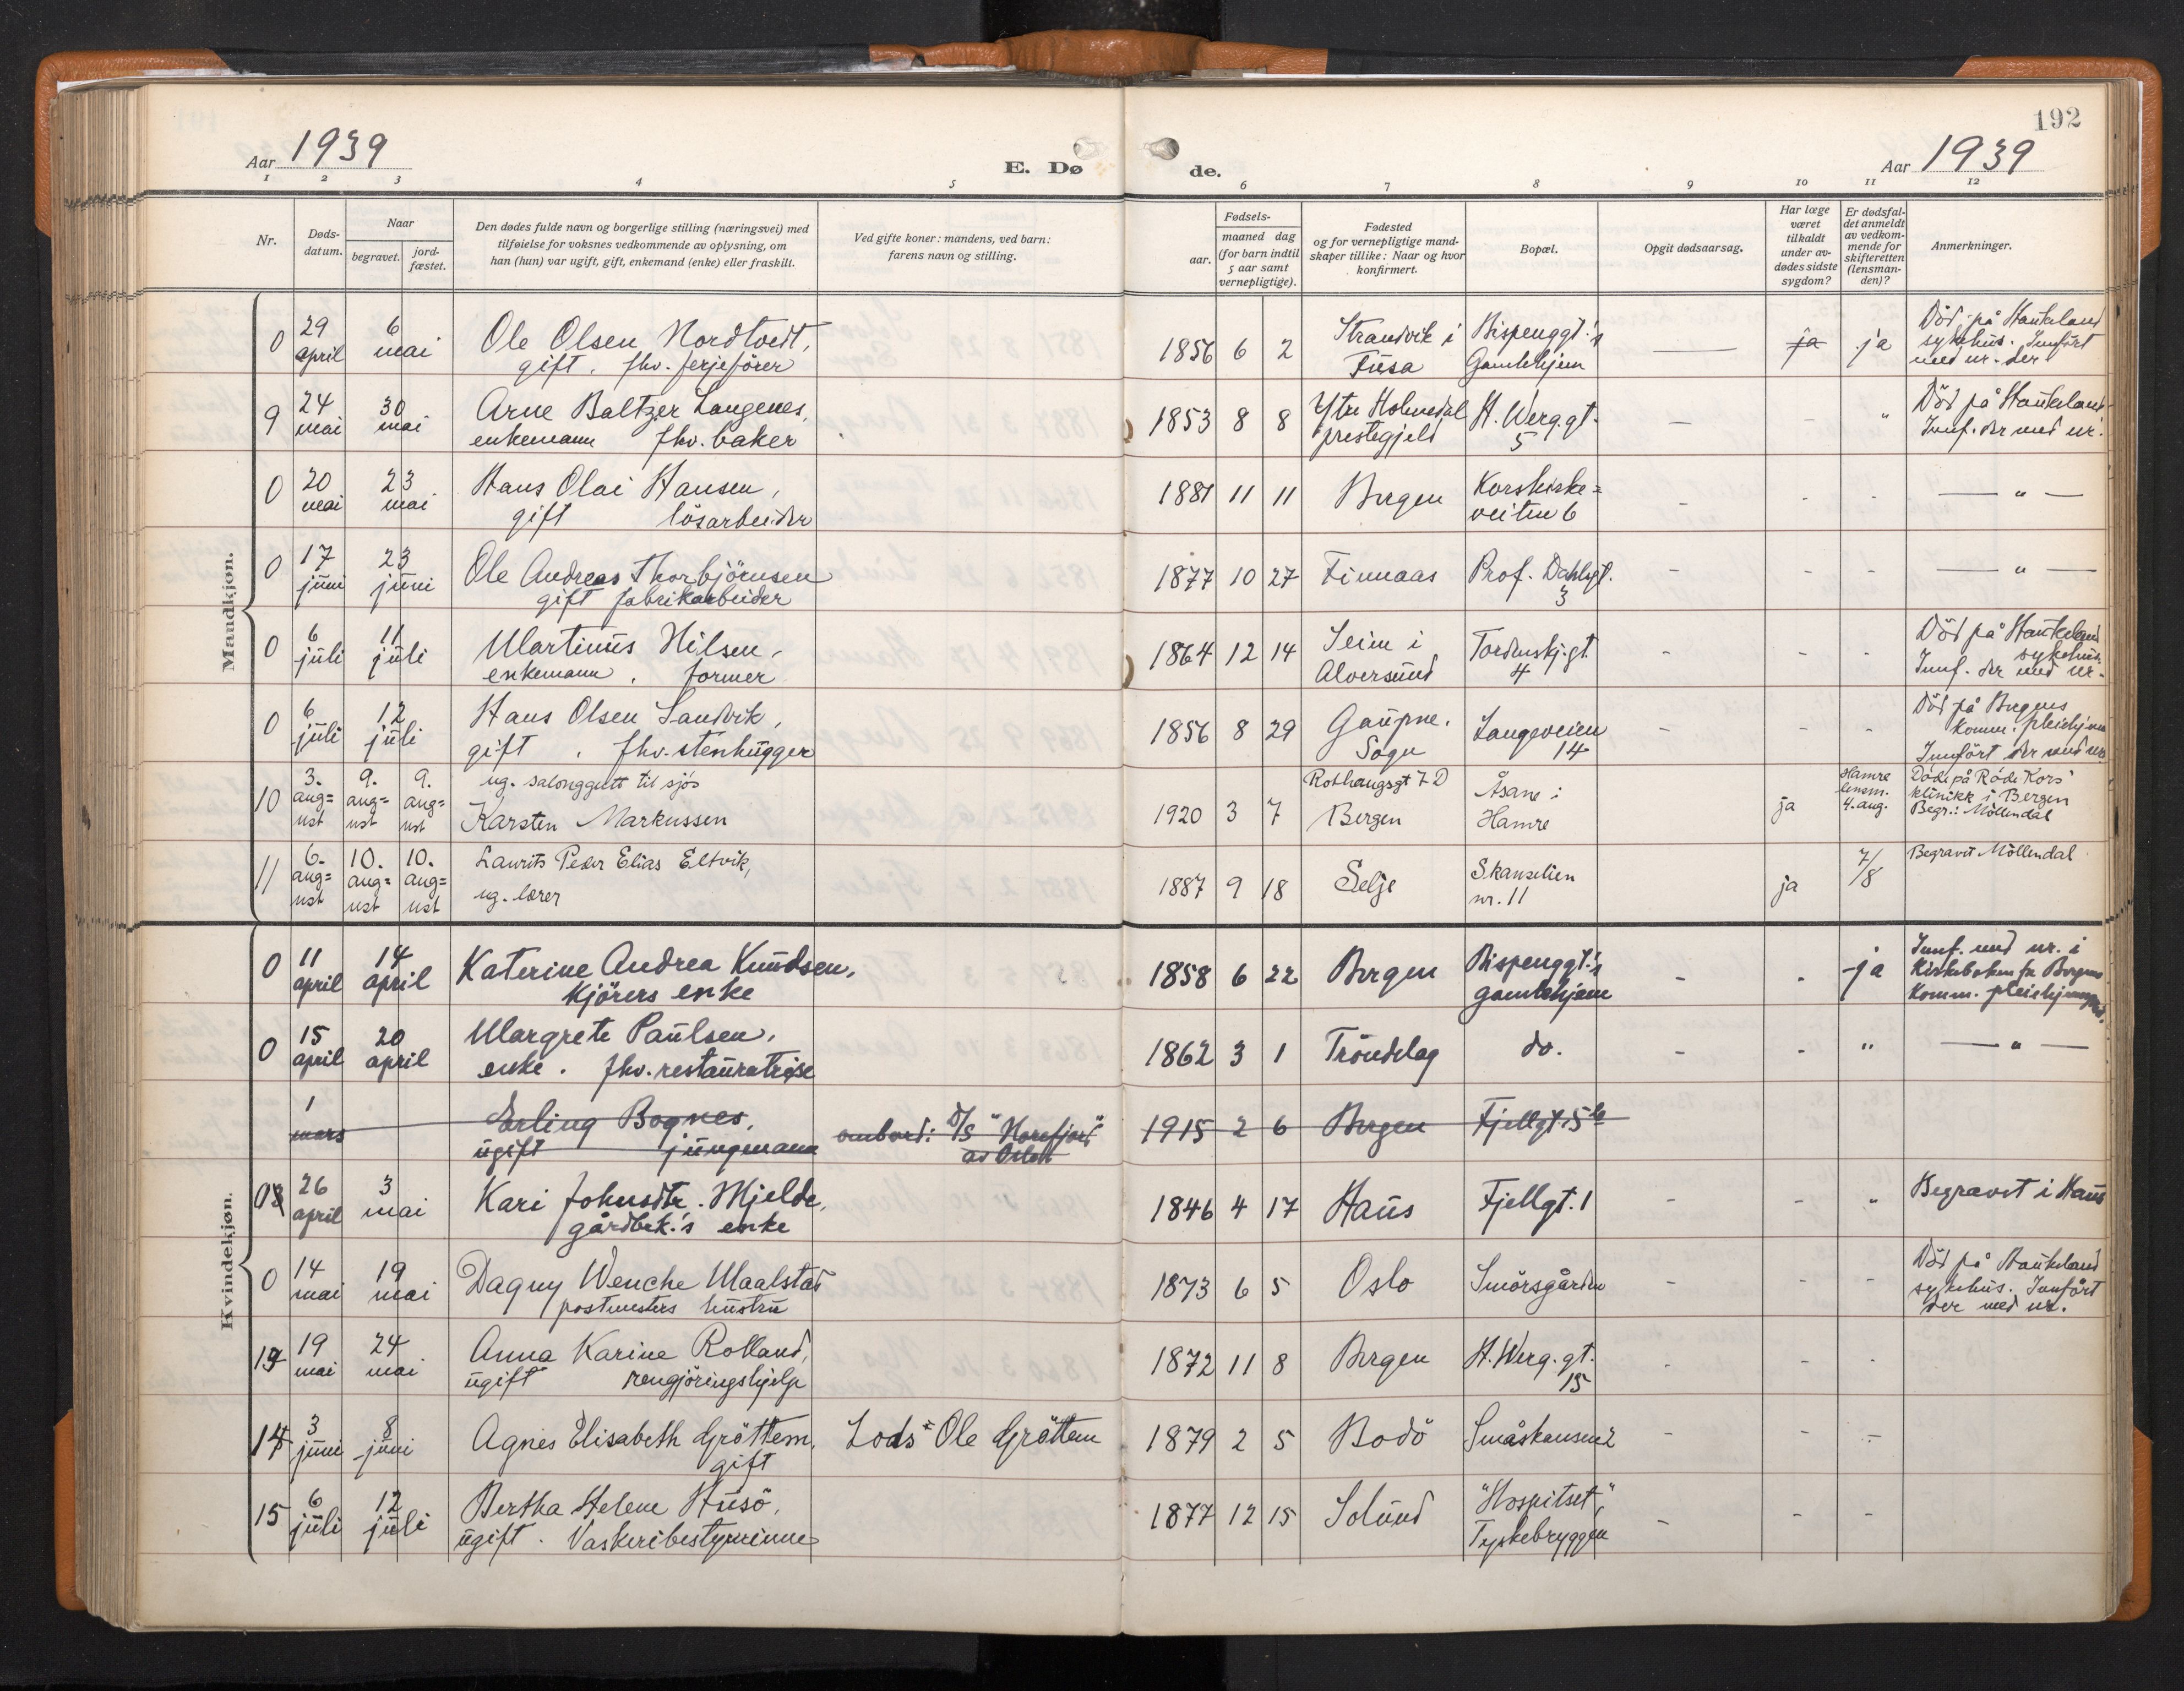 192
Aar 1939
E. Dø
de.
Aar 1939
1 2 3 4 5 6 7 8 9 10 11 12
Nr.
Døds-
datum.
Naar
begravet.
jord-
fæstet.
Den dødes fulde navn og borgerlige stilling (næringsvei) med
tilføielse for voksnes vedkommende av oplysning, om
han (hun) var ugift, gift, enkemand (enke) eller fraskilt.
Ved gifte koner: mandens, ved barn:
farens navn og stilling.
Fødsels-
aar.
maaned dag
(for barn indtil
5 aar samt
vernepligtige).
Fødested
og for vernepligtige mand-
skaper tillike: Naar og hvor
konfirmert.
Bopæl.
Opgit dødsaarsag.
Har læge
været
tilkaldt
under av-
dødes sidste
sygdom?
Er dødsfal-
det anmeldt
av vedkom-
mende for
skifteretten
(lensman-
den)?
Anmerkninger.
Mandkjøn.
0 29 april 6 mai Ole Olsen Nordtvedt,
gift. fhv. ferjefører
1856 6 2 Strandvik i
Fusa
Bispenggt.'s
Gamlehjem
— ja ja
Död på Haukeland
sykehus. Innfört
med nr. der
9 24 mai 30 mai Arne Baltzer Langenes,
enkemann fhv. baker
1853 8 8 Ytre Holmedal
prestegjeld
H. Werg.gt.
5
- - "
Död på Haukeland
Innf. der med nr.
0 20 mai 23 mai Hans Olai Hansen,
gift lösarbeider
1881 11 11 Bergen Korskirke=
veiten 6
- - - — " —
0 17 juni 23 juni Ole Andreas Thorbjörnsen
gift fabrikarbeider
1877 10 27 Finnaas Prof. Dahlsgt.
3
- - - — " —
0 6 juli 11 juli Martinus Nilsen,
enkemann, former
1864 12 14 Seim i
Alversund
Tordenskj.gt
4
- - -
Död på Haukeland
sykehus.
Innf. der med nr.
0 6 juli 12 juli Hans Olsen Sandvik,
gift, fhv. stenhugger
1856 8 29 Gaupne,
Sogn
Langeveien
14
- - -
Död på Bergens
komm. pleiehjem
Innfört der med nr
10 3. aug=ust 9. aug=ust 9. aug=ust ug. salonggutt til sjös
Karsten Markussen
1920 3 7 Rothaugsgt 7 D
Bergen
Åsane i
Hamre
ja Hamre
lensm.
4. aug.
Döde på Röde Kors'
klinikk i Bergen
Begr.: Möllendal
11 6. aug=ust 10. aug=ust 10. aug=ust Laurits Peder Elias Eltvik,
ug. lærer
1887 9 18 Selje Skanselien
nr. 11
ja 7/8 Begravet Möllendal
Kvindekjøn.
0 11 april 14 april Katerine Andrea Knudsen,
kjörers enke
1858 6 22 Bergen Bispenggt.'s
gamlehjem
- - ja
Innf. med nr. i
Kirkeboken for Bergens
Komm. pleiehjem
0 15 april 20 april Margrete Paulsen,
enke. fhv. restauratrise
1862 3 1 Tröndelag do.
- - " — " —
1 mars Erling Bognes,
ugift jungmann
ombord: D/S "Norefjord"
av Oslo
1915 2 6 Bergen Fjellgt. 5 b
26 april 3 mai Kari Johnsdtr. Mjelde,
gårdbr.'s enke
1846 4 17 Haus Fjellgt. 1
- - " Begravet i Haus
0 14 mai 19 mai Dagny Wenche Maalstad
postmesters hustru
1873 6 5 Oslo Smörsgården
- - -
Död på Haukeland
sykehus. Innfört
der med nr.
13 19 mai 24 mai Anna Karine Rolland,
ugift rengjöringshjelp
1872 11 8 Bergen H. Werg. gt.
15
- - -
14 3 juni 8 juni Agnes Elisabeth Gröttem,
gift
Lods Ole Gröttem
1879 2 5 Bodö Småskansen 2
- - -
15 6 juli 12 juli Bertha Helene Husö,
ugift. Vaskeribestyrerinne
1877 12 15 Solund "Hospitset",
Tyskebryggen
- - -